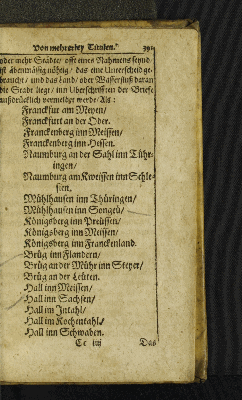 Von mehrerley Titolen. 391
oder mehr Städte/ offt eines Nahmens seynd
ist abenmässig nöhtig/ das eine Unterscheid ge-
braucht/ und das Land/ oder Wasserfluß daran
die Stadt liegt/ inn Uberschrifften der Briefe
außdrücklich vermeldet werde/ Als:
Franckfurt am Meyen/
Franckfurt an der Oder.
Franckenberg inn Meissen/
Franckenberg inn Hessen.
Naumburg an der Sahl inn Thür-
ringen/
Naumburg am Kweissen inn Schle-
sien.
Mühlhausen inn Thüringen/
Mühlhausen inn Songöü/
Königsberg inn Preüssen/
Königsberg inn Meissen/
Königsberg inn Franckenland.
Brüg inn Flandern/
Brüg an der Mühr inn Steyer/
Brüg an der Leüten.
Hall inn Meissen/
Hall inn Sachsen/
Hall im Intahl/
Hall im Kochentahl/
Hall inn Schwaben.
Cc iiij Das